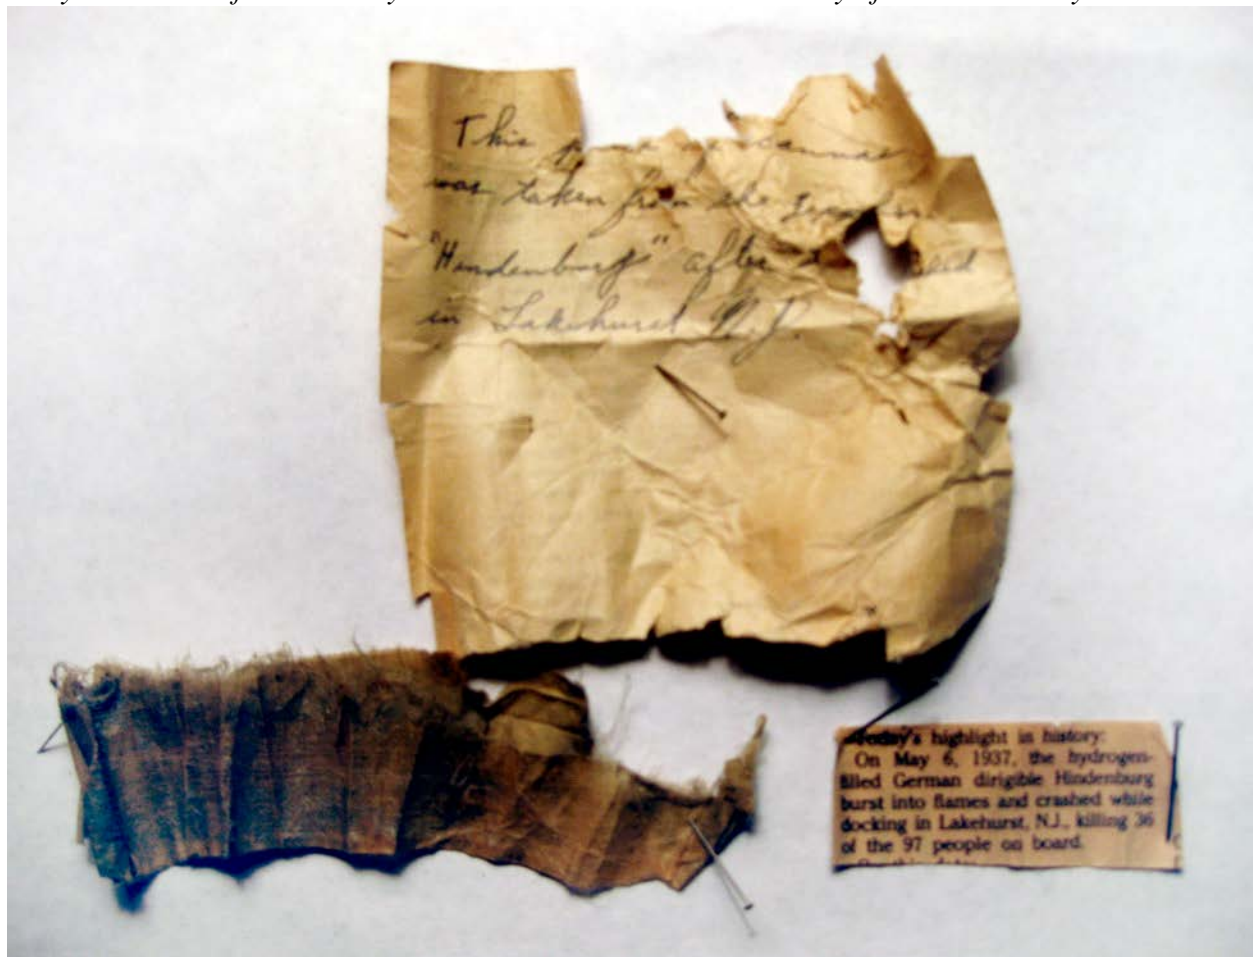 This
was taken from the
"Hindenburg" after
in Lakehurst N.J.
Today's highlight in history:
On May 6, 1937, the hydrogen-
filled German dirigible Hindenburg
burst into flames and crashed while
docking in Lakehurst, N.J., killing 36
of the 97 people on board.